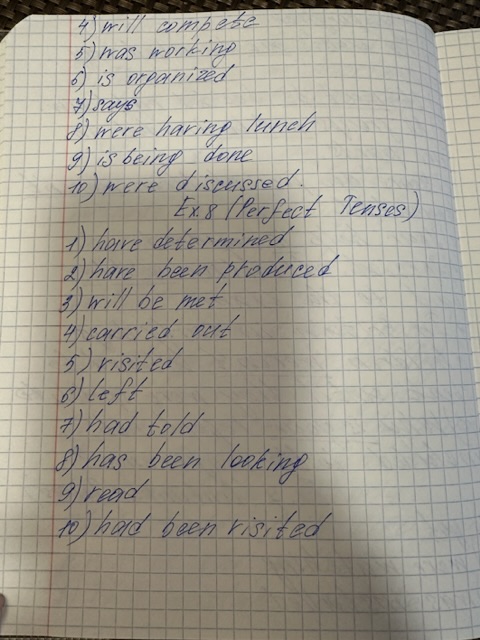 4) will compete
5) was working
6) is organized
7) says
8) were having lunch
9) is being done
10) were discussed.
Ex.8 (Perfect Tenses)
1) have determined
2) have been produced
3) will be met
4) carried out
5) visited
6) left
7) had told
8) has been looking
9) read
10) had been visited